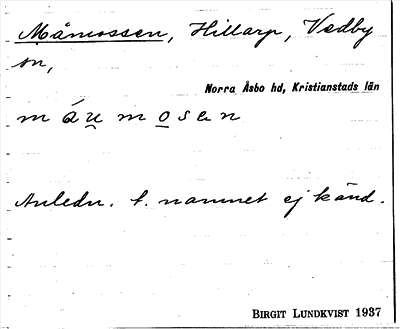 Måmossen, Hillarp, Vedby
sn,
Norra Åsbo hd, Kristianstads län
m áu̯ m o s e n
Anledn. t. namnet ej känd.
BIRGIT LUNDKVIST 1937